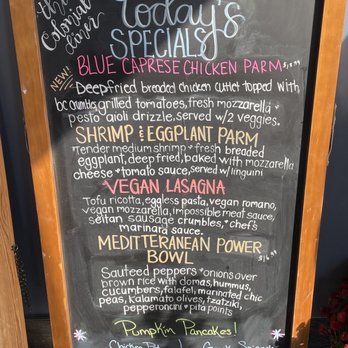 the
Colonial
diner
today's
SPECIALS
NEW!
BLUE CAPRESE CHICKEN PARM
Deepfried breaded chicken cutlet topped with
bc crumbles, grilled tomatoes, fresh mozzarella +
pesto aioli drizzle, served w/2 veggies.
SHRIMP and EGGPLANT PARM
Tender medium shrimp + fresh breaded
eggplant, deep fried, baked with mozzarella
cheese + tomato sauce, served w/linguini
VEGAN LASAGNA
Tofu ricotta, eggless pasta, vegan romano,
vegan mozzarella, impossible meat sauce,
seitan sausage crumbles, + chef's
marinara sauce.
MEDITTERANEAN POWER
BOWL
Sauteed peppers + onions over
brown rice with domas, hummus,
cucumbers, falafel, marinated chic
peas, Kalamato olives, tzatziki,
pepperoncini + pita points
Pumpkin Pancakes!
Chicken